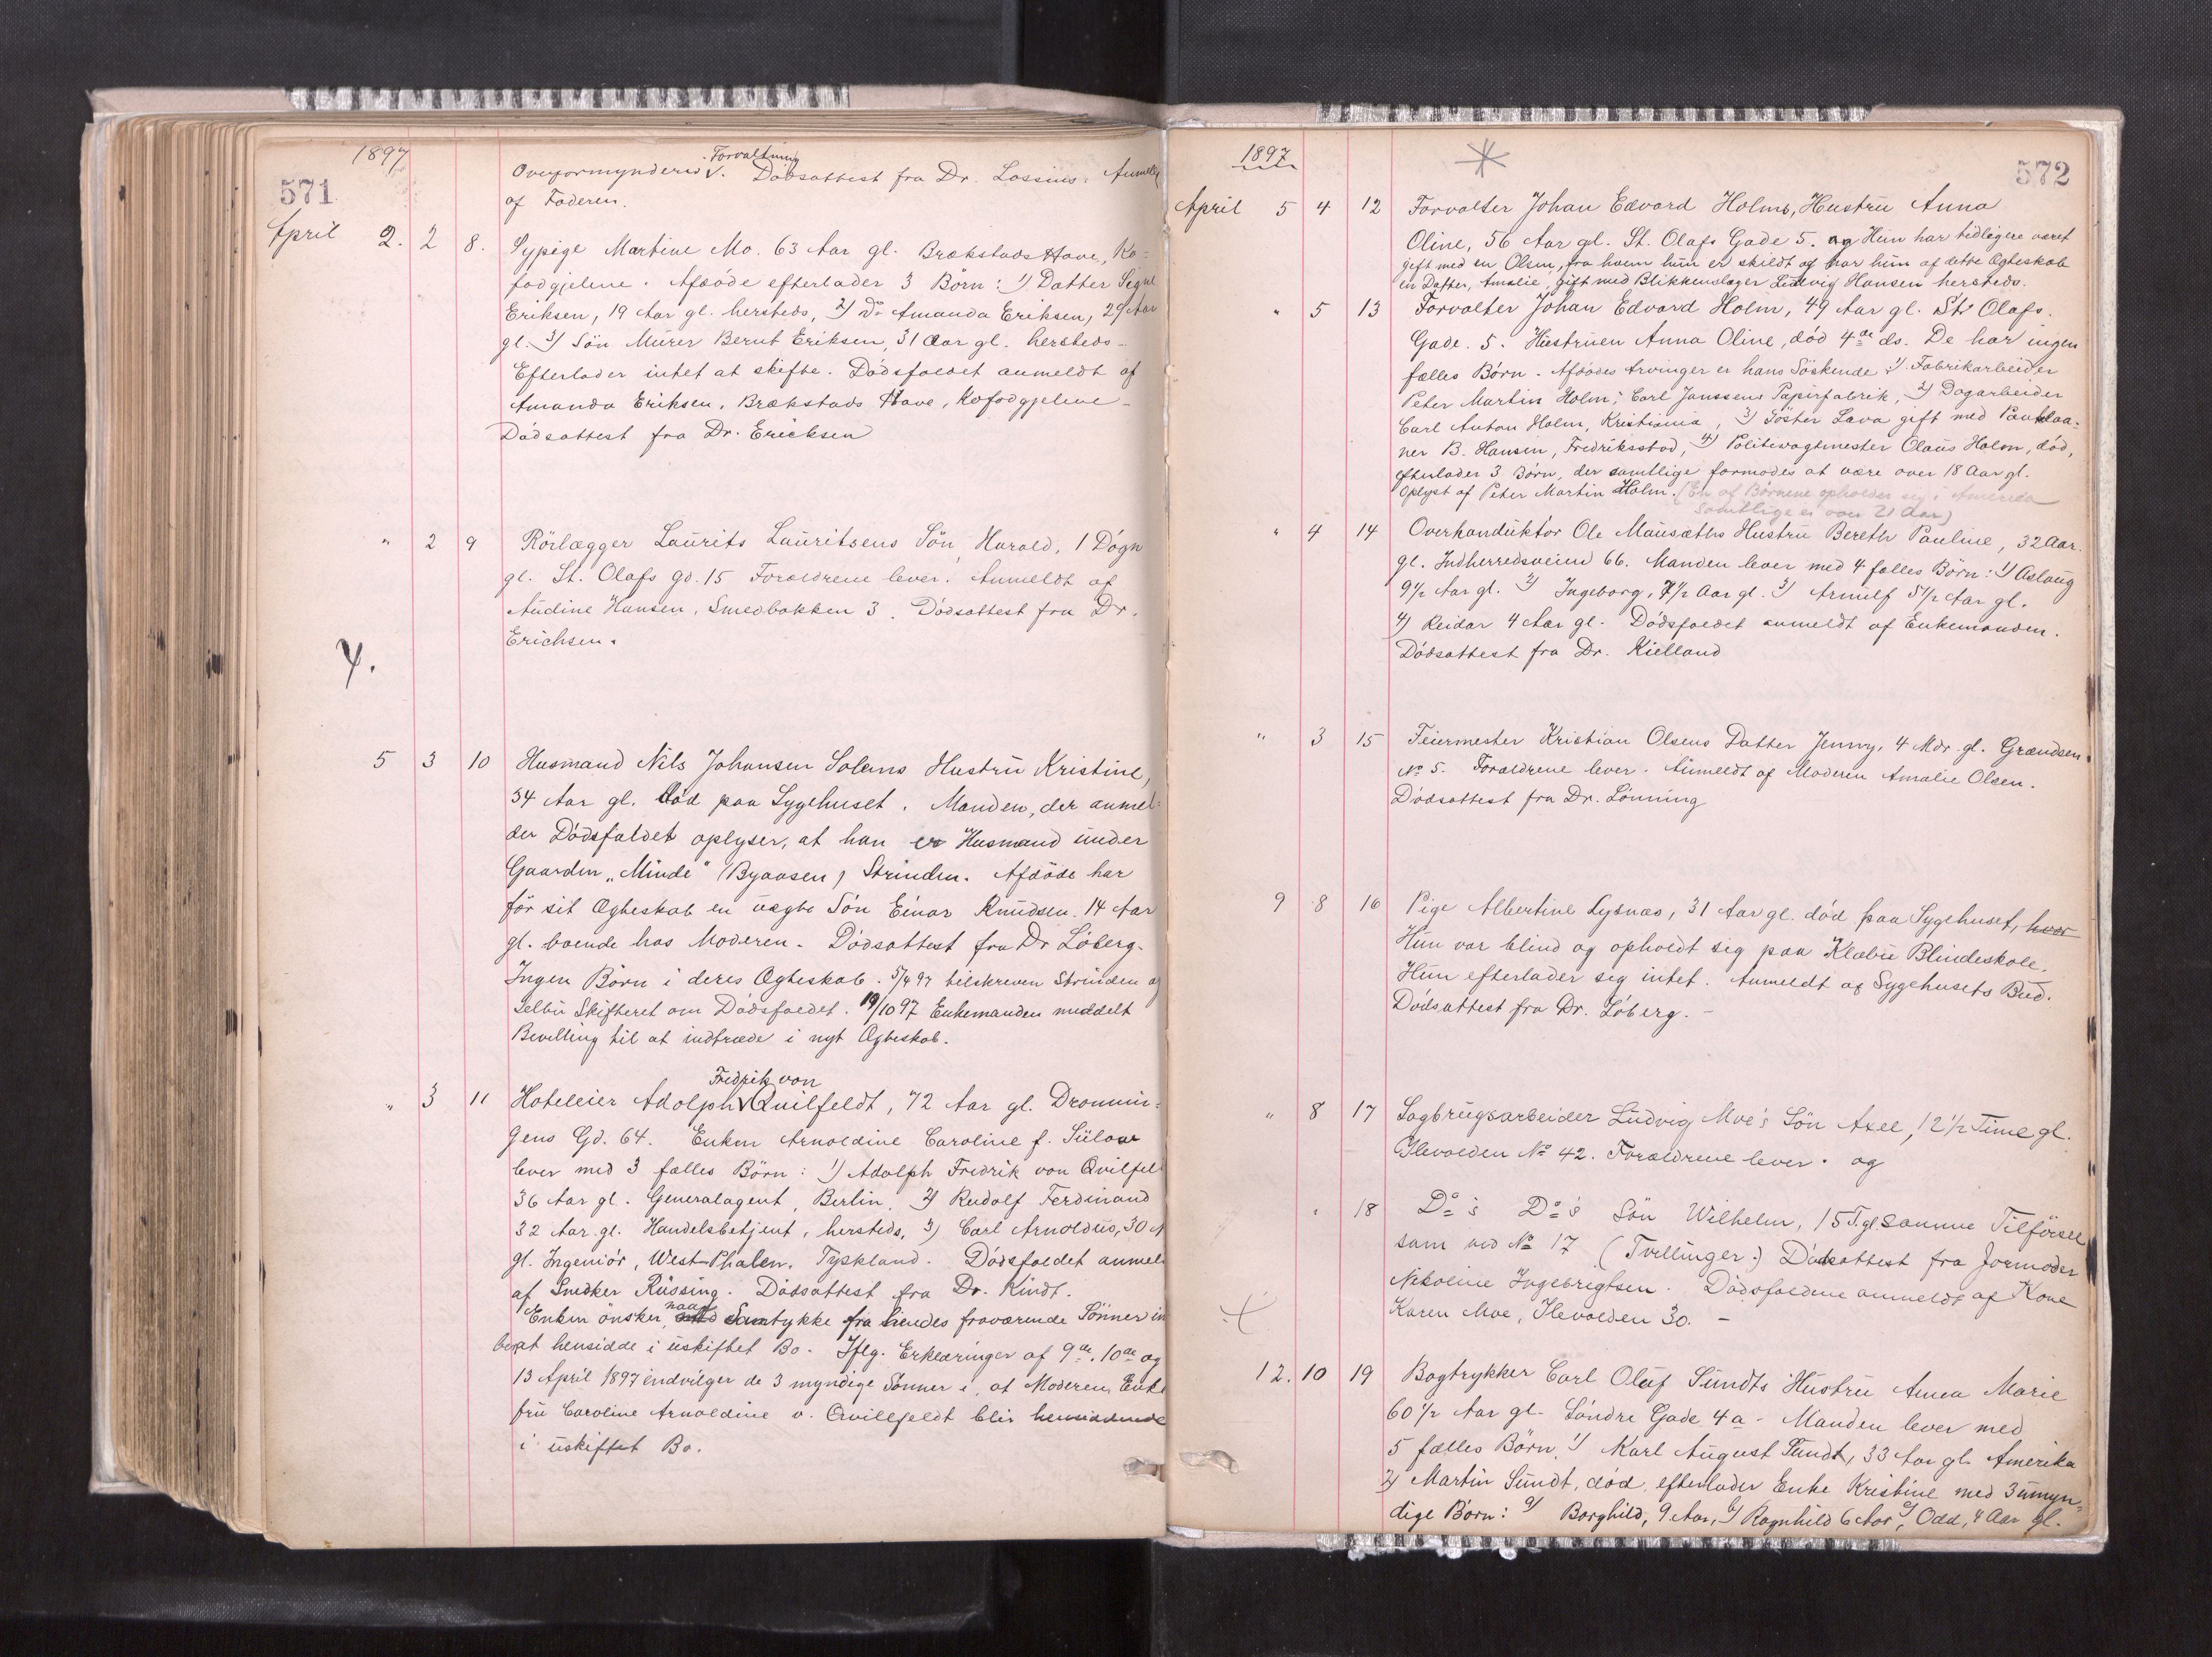 1897
571
Overformynderiets Forvaltning. Dødsattest fra Dr. Lossius. Anmeldt
af Faderen.
April 2. 2 8. Sypige Martine Mo. 63 Aar gl. Brækstads Have, Ko-
fodgjelene. Afdøde efterlader 3 Børn: 1) Datter Signe
Eriksen, 19 Aar gl. hersteds, 2) Do Amanda Eriksen, 29 Aar
gl. 3) Søn Murer Bernt Eriksen, 31 Aar gl. hersteds -
Efterlader intet at skifte. Dødsfaldet anmeldt af
Amanda Eriksen, Brækstads Have, Kofodgjelene -
Dødsattest fra Dr. Ericksen
" 2 9 Rørlægger Laurits Lauritsens Søn, Harald, 1 Døgn
gl. St. Olafs Gd. 15 Forældrene lever. Anmeldt af
Audine Hansen, Smedbakken 3. Dødsattest fra Dr.
Erichsen.
5 3 10 Husmand Nils Johansen Solems Hustru Kristine,
54 Aar gl. død paa Sygehuset. Manden, der anmel-
der Dødsfaldet oplyser, at han er Husmand under
Gaarden „Minde" (Byaasen) Strinden. Afdøde har
før sit Ægteskab en uægte Søn Einar Knudsen. 14 Aar
gl. boende hos Moderen. Dødsattest fra Dr Løberg.
Ingen Børn i deres Ægteskab. 5/4 97 tilskreven Strinden og
Selbu Skifteret om Dødsfaldet. 19/10 97 Enkemanden meddelt
Bevilling til at indtræde i nyt Ægteskab.
" 3 11 Hoteleier Adolph Fredrik von Quilfeldt, 72 Aar gl. Dronnin-
gens Gd. 64. Enken Arnoldine Caroline f. Sülow
lever med 3 fælles Børn: 1) Adolph Fredrik von Qvilfel
36 Aar gl. Generalagent, Berlin, 2) Rudolf Ferdinand
32 Aar gl. Handelsbetjent, hersteds, 3) Carl Arnoldus, 30 A
gl. Ingeniør, West-Phalen. Tyskland. Dødsfaldet anmel
af Snedker Rüssing. Dødsattest fra Dr. Kindt.
Enken ønsker, naar Samtykke fra hendes fraværende Sønner in
at hensidde i uskiftet Bo. Iflg. Erklæringer af 9de, 10de og
13 April 1897 indvilger de 3 myndige Sønner i, at Moderen, Enke
fru Caroline Arnoldine v. Qvillfeldt blir hensiddende
i uskiftet Bo.
1897
572
April 5 4 12 Forvalter Johan Edvard Holms, Hustru Anna
Oline, 56 Aar gl. St. Olafs Gade 5. og Hun har tidligere været
gift med en Olsen, fra hvem hun er skildt og har hun af dette Ægteskab
en Datter, Amalie, gift med Blikkenslager Ludvig Hansen hersteds.
" 5 13 Forvalter Johan Edvard Holm, 49 Aar gl. St. Olafs.
Gade. 5. Hustruen Anna Oline, død 4de ds. De har ingen
fælles Børn. Afdødes Arvinger er hans Søskende: 1) Fabrikarbeider
Peter Martin Holm, Carl Janssens Papirfabrik, 2) Dagarbeider
Carl Anton Holm, Kristiania, 3) Søster Lava gift med Pantelaa-
ner B. Hansen, Fredriksstad, 4) Politivagtmester Olaus Holm, død,
efterlader 3 Børn, der samtlige formodes at være over 18 Aar gl.
Oplyst af Peter Martin Holm. (En af Børnene opholder sig i Amerika
Samtlige er over 21 Aar)
" 4 14 Overkonduktør Ole Mausæths Hustru Bereth Pauline, 32 Aar
gl. Indherredsveien 66. Manden lever med 4 fælles Børn: 1) Aslaug
9 1/2 Aar gl. 2) Ingeborg, 7 1/2 Aar gl. 3) Arnulf 5 1/2 Aar gl.
4) Reidar 4 Aar gl. Dødsfaldet anmeldt af Enkemanden.
Dødsattest fra Dr. Kielland
" 3 15 Feiermester Kristian Olsens Datter Jenny, 4 Mdr. gl. Grændsen
No 5. Forældrene lever. Anmeldt af Moderen Amalie Olsen.
Dødsattest fra Dr. Lønning
9 8 16 Pige Albertine Lysnæs, 31 Aar gl. død paa Sygehuset, hvor
Hun var blind og opholdt sig paa Klæbu Blindeskole.
Hun efterlader sig intet. Anmeldt af Sygehusets Bud.
Dødsattest fra Dr. Løberg. -
" 8 17 Sagbrugsarbeider Ludvig Moe's Søn Axel, 12 1/2 Time gl.
Ilevolden No 42. Forældrene lever. og
" 18 Do's Do's Søn Wilhelm, 15 T. gl samme Tilførsel
som ved No 17 (Tvillinger.) Dødsattest fra Jormoder
Nikoline Ingebregtsen. Dødsfaldene anmeldt af Kone
Karen Moe, Ilevolden 30. -
12. 10 19 Bogtrykker Carl Oluf Sundts Hustru Anna Marie
60 1/2 Aar gl. Søndre Gade 4a. Manden lever med
5 fælles Børn. 1) Karl August Sundt, 33 Aar gl. Amerika
2) Martin Sundt, død, efterlader Enke Kristine med 3 umyn-
dige Børn: a) Borghild, 9 Aar, b) Ragnhild 6 Aar, c) Odd, 4 Aar gl.